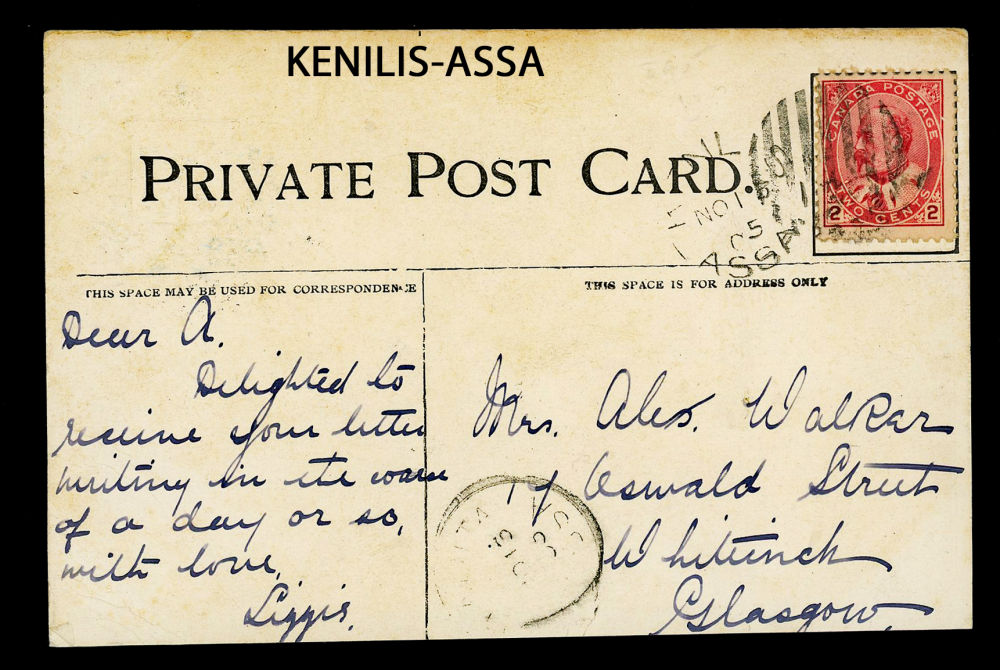 KENILIS-ASSA
PRIVATE POST CARD.
CANADA POSTAGE
2 TWO CENTS 2
NO 15
05
ASSA
THIS SPACE MAY BE USED FOR CORRESPONDENCE
THIS SPACE IS FOR ADDRESS ONLY
Dear A.
Delighted to
receive your letter
writing in the course
of a day or so,
with love,
Mrs. Alex. Walker
17 Oswald Street
Whiteinch
Glasgow